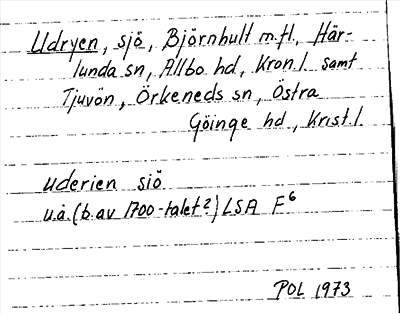 Udryen, sjö, Björnhult m.fl., Här-
lunda sn, Allbo hd, Kron.l. samt
Tjuvön, Örkeneds sn, Östra
Göinge hd, Krist.l.
uderien siö
u.å. (b. av 1700-talet?) LSA F6
POL 1973